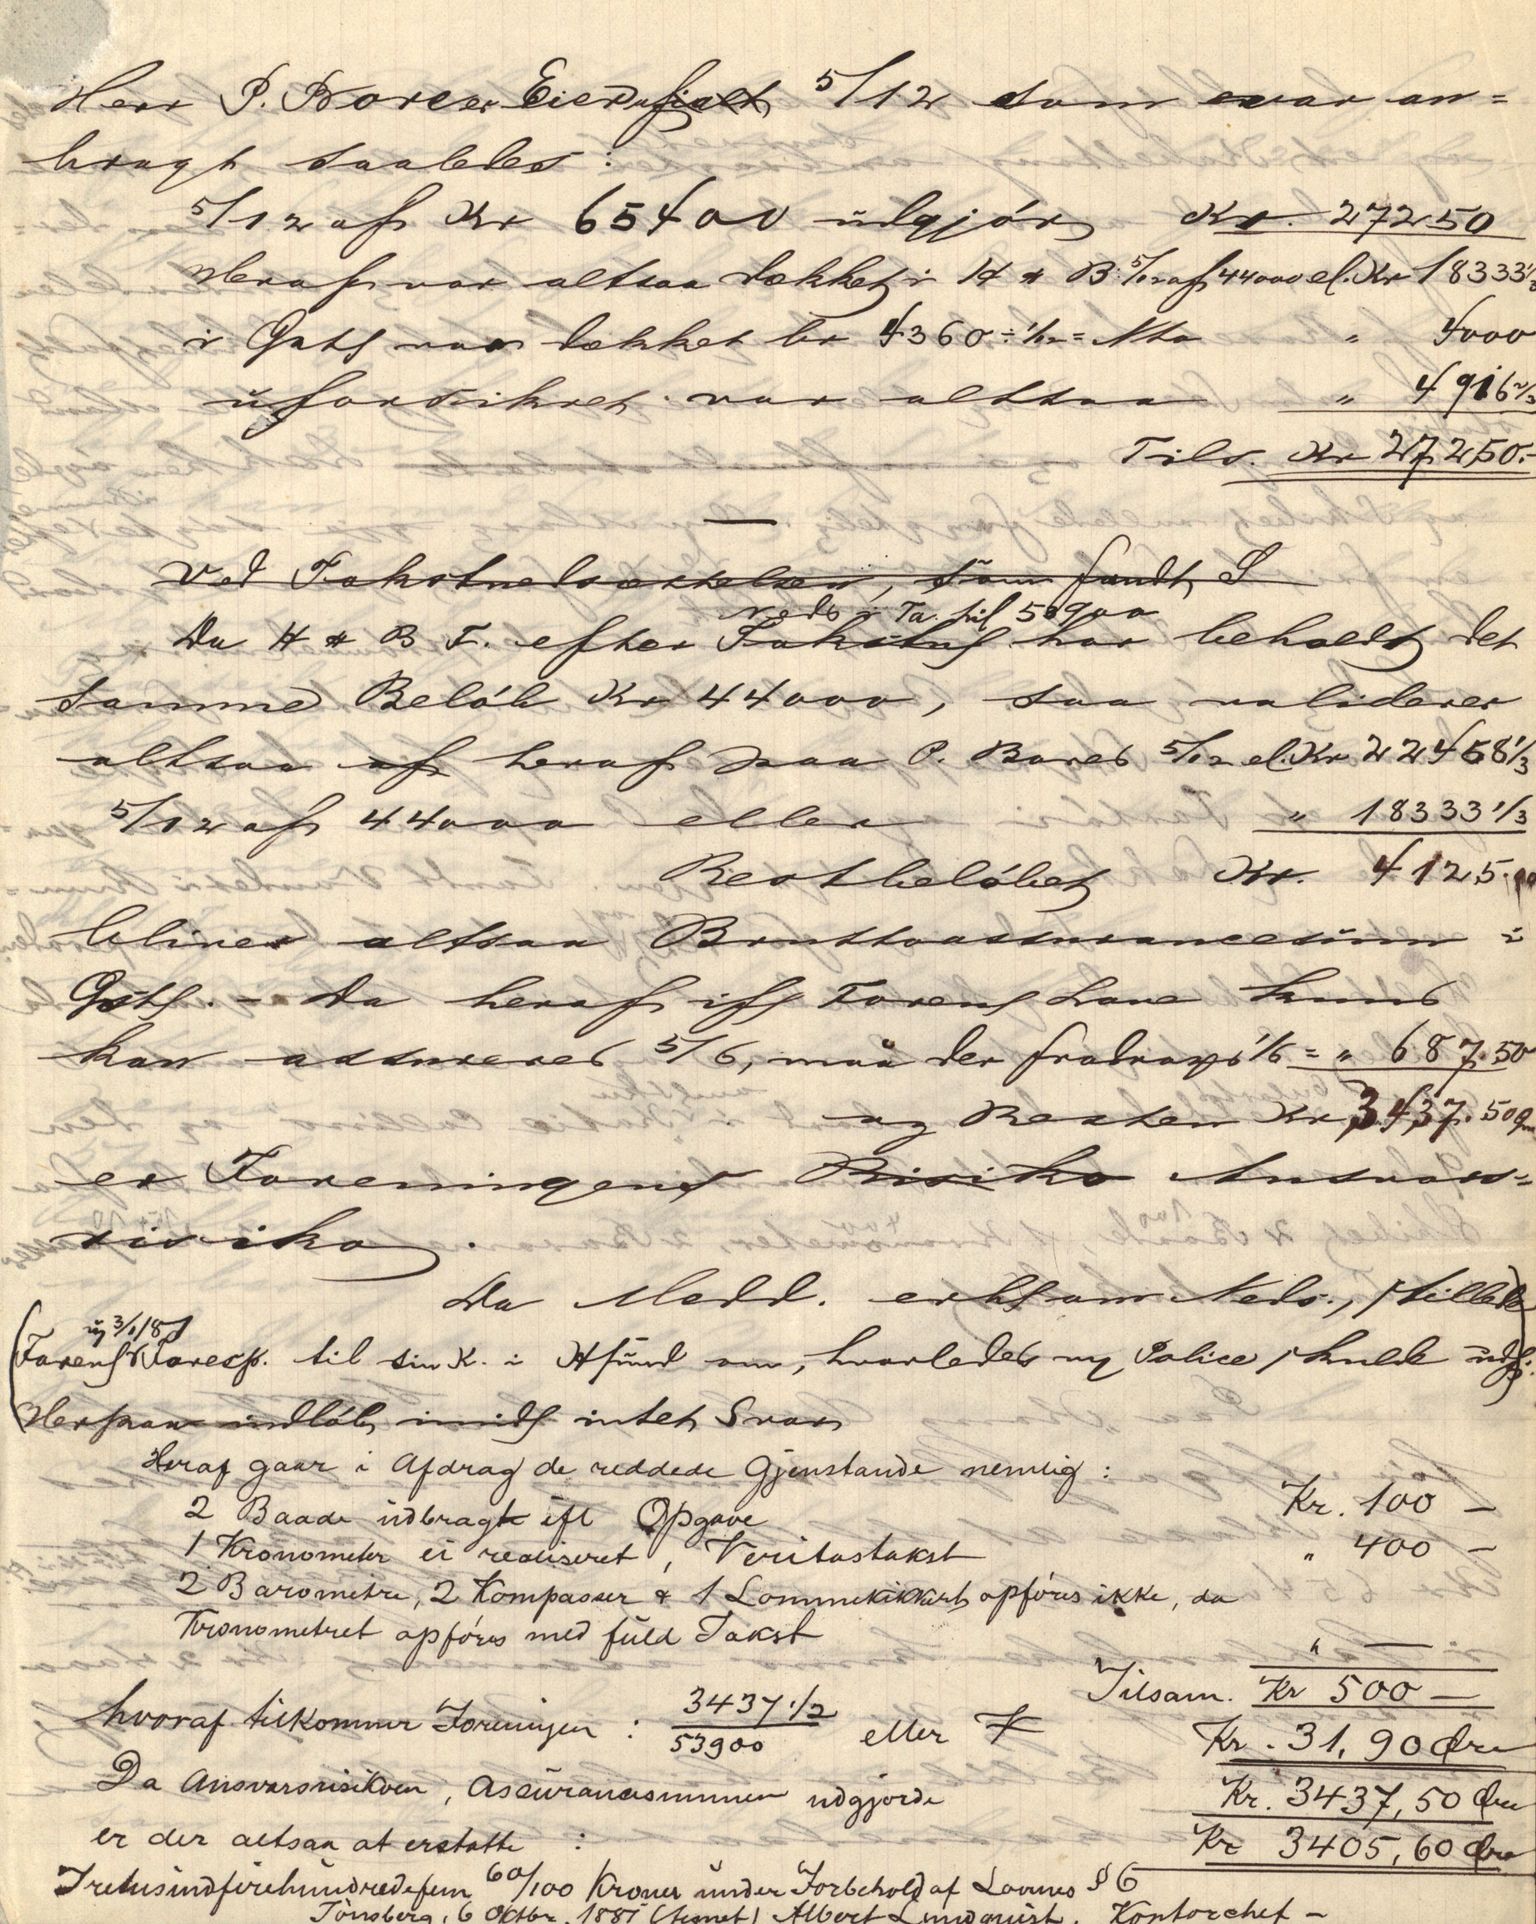 Herr P. Bores Eierd 5/12 som var an=
bragt saaledes:
5/12 af Kr 65400 udgjør Kr. 27250
Heraf var altsaa dækket i H & B. 5/12 af 44000 el. Kr 18333 1/3
i Gjsts var dækket br 4360 ÷ 1/12 = Nto " 4000
uforsikret var altsaa " 4916 2/3
Tils. Kr 27250.-
Ved Takstnedsættelsen, som fandt S
Neds i Ta. til 53900
Da H & B F. efter Takstns har beholdt det
samme Beløb Kr 44000, saa validerer
altsaa af heraf paa P. Bores 5/12 el. Kr 22458 1/3
5/12 af 44000 eller " 18333 1/3
Restbeløbet Kr. 4125.00
bliver altsaa Bruttoassurancesum i
Gjsts. - Da heraf iflg Forens Love kuns
kan assureres 5/6, maa der fradrages 1/6 = " 687.50
og Resten Kr 3437.50 Øre
er Foreningens Risiko Ansvars=
risiko.
Da Medd. erholdt om Neds., stillede
ug 3/1/81
Forens Foresp. til sin K. i Hsund om, hvorledes ny Police skulde udf:
Herpaa indløb imidl intet Svar
Heraf gaar i Afdrag de reddede Gjenstande nemlig:
2 Baade udbragt ifl Opgave Kr. 100 -
1 Kronometer ei realiseret, Veritastakst " 400 -
2 Barometre, 2 Kompasser & 1 Lommekikkert opføres ikke, da
Kronometret opføres med fuld Takst " -
Tilsam. Kr 500 -
hvoraf tilkommer Foreningen: 3437 1/2 / 53900 eller Kr. 31,90 Øre
Da Ansvarsrisikoen, Assurancesummen udgjorde Kr. 3437,50 Øre
er der altsaa at erstatte: Kr 3405,60 Øre
Tretusindfirehundredefem 60/100 Kroner under Forbehold af Lovenes § 6
Tønsberg, 6 Oktbr. 1881 (tegnet) Albert Lundquist. Kontorchef -